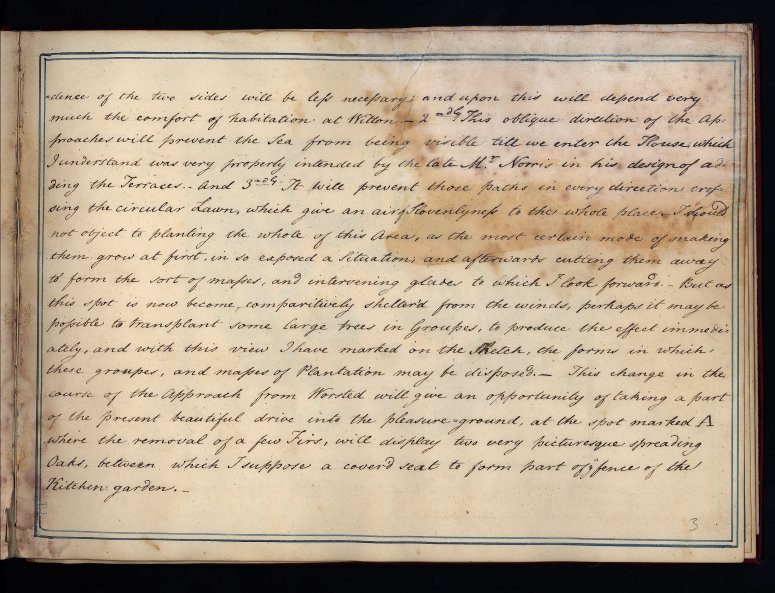 -dence of the two sides will be leſs neceſsary; and upon this will depend very
much the comfort of habitation at Witton. – 2ndly This oblique direction of the Ap-
proaches will prevent the Sea from being visible till we enter the House, which
I understand was very properly intended by the late Mr. Norris in his design of ad-
ding the Terraces. - And 3rdly. It will prevent those paths in every direction croſ-
sing the circular Lawn, which give an air of slovenlyneſs to the whole place. I should
not object to planting the whole of this Area, as the most certain mode of making
them grow at first, in so exposed a Situation; and afterwards cutting them away
to form the sort of maſses, and intervening glades to which I look forward. - But as
this spot is now become, comparitively shelter'd from the winds, perhaps it may be
poſsible to transplant some large trees in Groupes, to produce the effect immedi-
ately, and with this view I have marked on the Sketch, the forms in which
these groupes, and maſses of Plantation may be disposed. – This change in the
course of the Approach from Worsted will give an opportunity of taking a part
of the present beautiful drive into the pleasure-ground, at the spot marked A
where the removal of a few Firs, will display two very picturesque spreading
Oaks, between which I suppose a cover'd seat to form part of ye fence of the
Kitchen garden. –
3